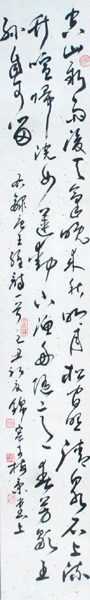 空山新雨後天氣晚來秋明月松間照清泉石上流
竹喧歸浣女蓮動下漁舟隨意春芳歇王
孫自可留
右錄唐王維詩一首